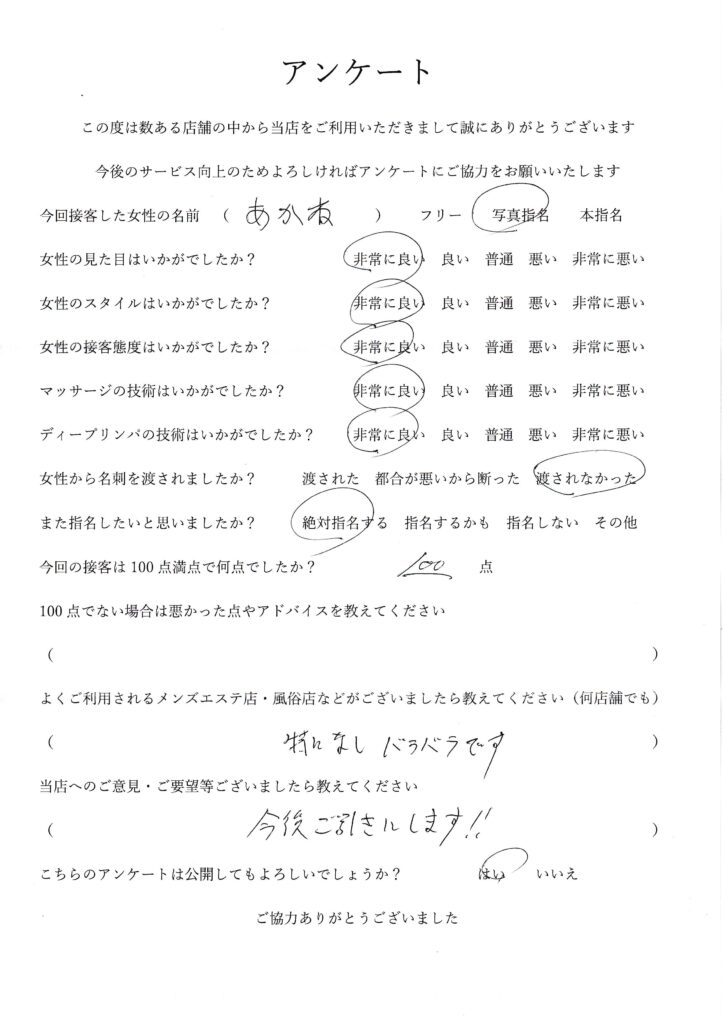 アンケート
この度は数ある店舗の中から当店をご利用いただきまして誠にありがとうございます
今後のサービス向上のためよろしければアンケートにご協力をお願いいたします
今回接客した女性の名前 （ あかね ） フリー 写真指名 本指名
女性の見た目はいかがでしたか？ 非常に良い 良い 普通 悪い 非常に悪い
女性のスタイルはいかがでしたか？ 非常に良い 良い 普通 悪い 非常に悪い
女性の接客態度はいかがでしたか？ 非常に良い 良い 普通 悪い 非常に悪い
マッサージの技術はいかがでしたか？ 非常に良い 良い 普通 悪い 非常に悪い
ディープリンパの技術はいかがでしたか？ 非常に良い 良い 普通 悪い 非常に悪い
女性から名刺を渡されましたか？ 渡された 都合が悪いから断った 渡されなかった
また指名したいと思いましたか？ 絶対指名する 指名するかも 指名しない その他
今回の接客は100点満点で何点でしたか？ 100 点
100点でない場合は悪かった点やアドバイスを教えてください
（ ）
よくご利用されるメンズエステ店・風俗店などがございましたら教えてください（何店舗でも）
（ 特になし バラバラです ）
当店へのご意見・ご要望等ございましたら教えてください
（ 今後ご引きにします!! ）
こちらのアンケートは公開してもよろしいでしょうか？ はい いいえ
ご協力ありがとうございました